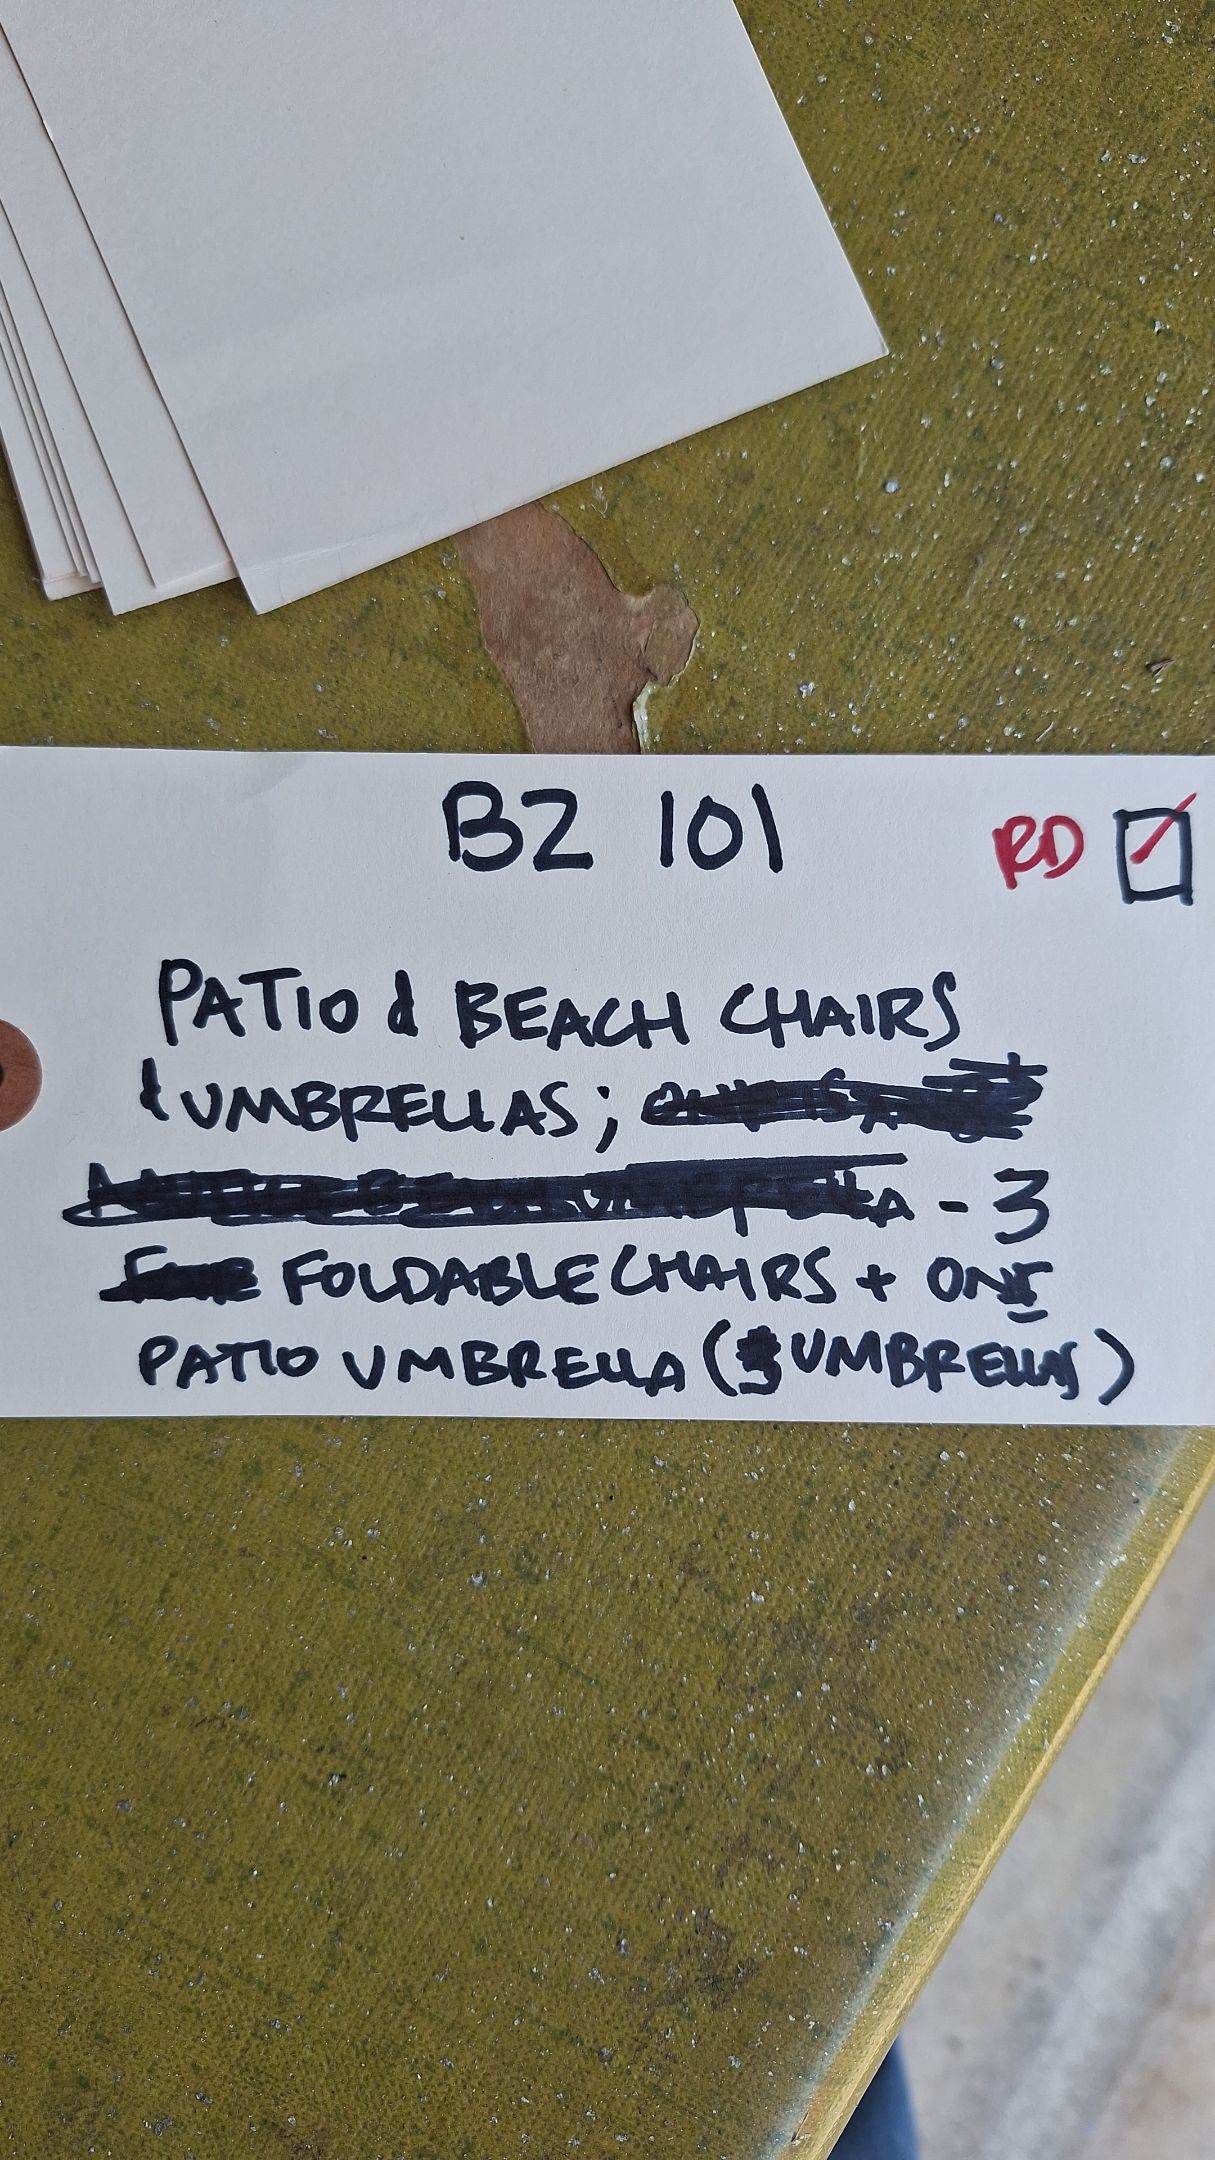 BZ 101
RD
PATIO & BEACH CHAIRS
& UMBRELLAS;
- 3
FOLDABLE CHAIRS + ONE
PATIO UMBRELLA (3 UMBRELLAS)